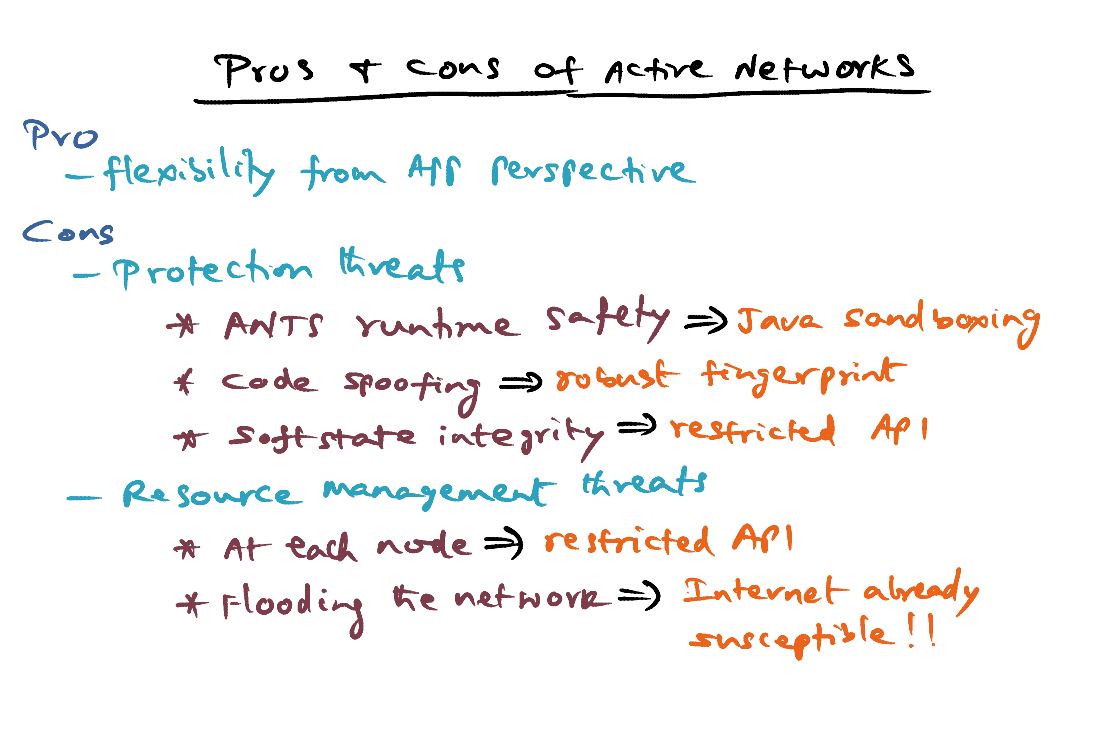 Pros + Cons of Active Networks
Pro
- flexibility from App perspective
Cons
- Protection threats
* ANTS runtime safety ⇒ Java sandboxing
* Code spoofing ⇒ robust fingerprint
* Soft state integrity ⇒ restricted API
- Resource management threats
* At each node ⇒ restricted API
* Flooding the network ⇒ Internet already
susceptible!!